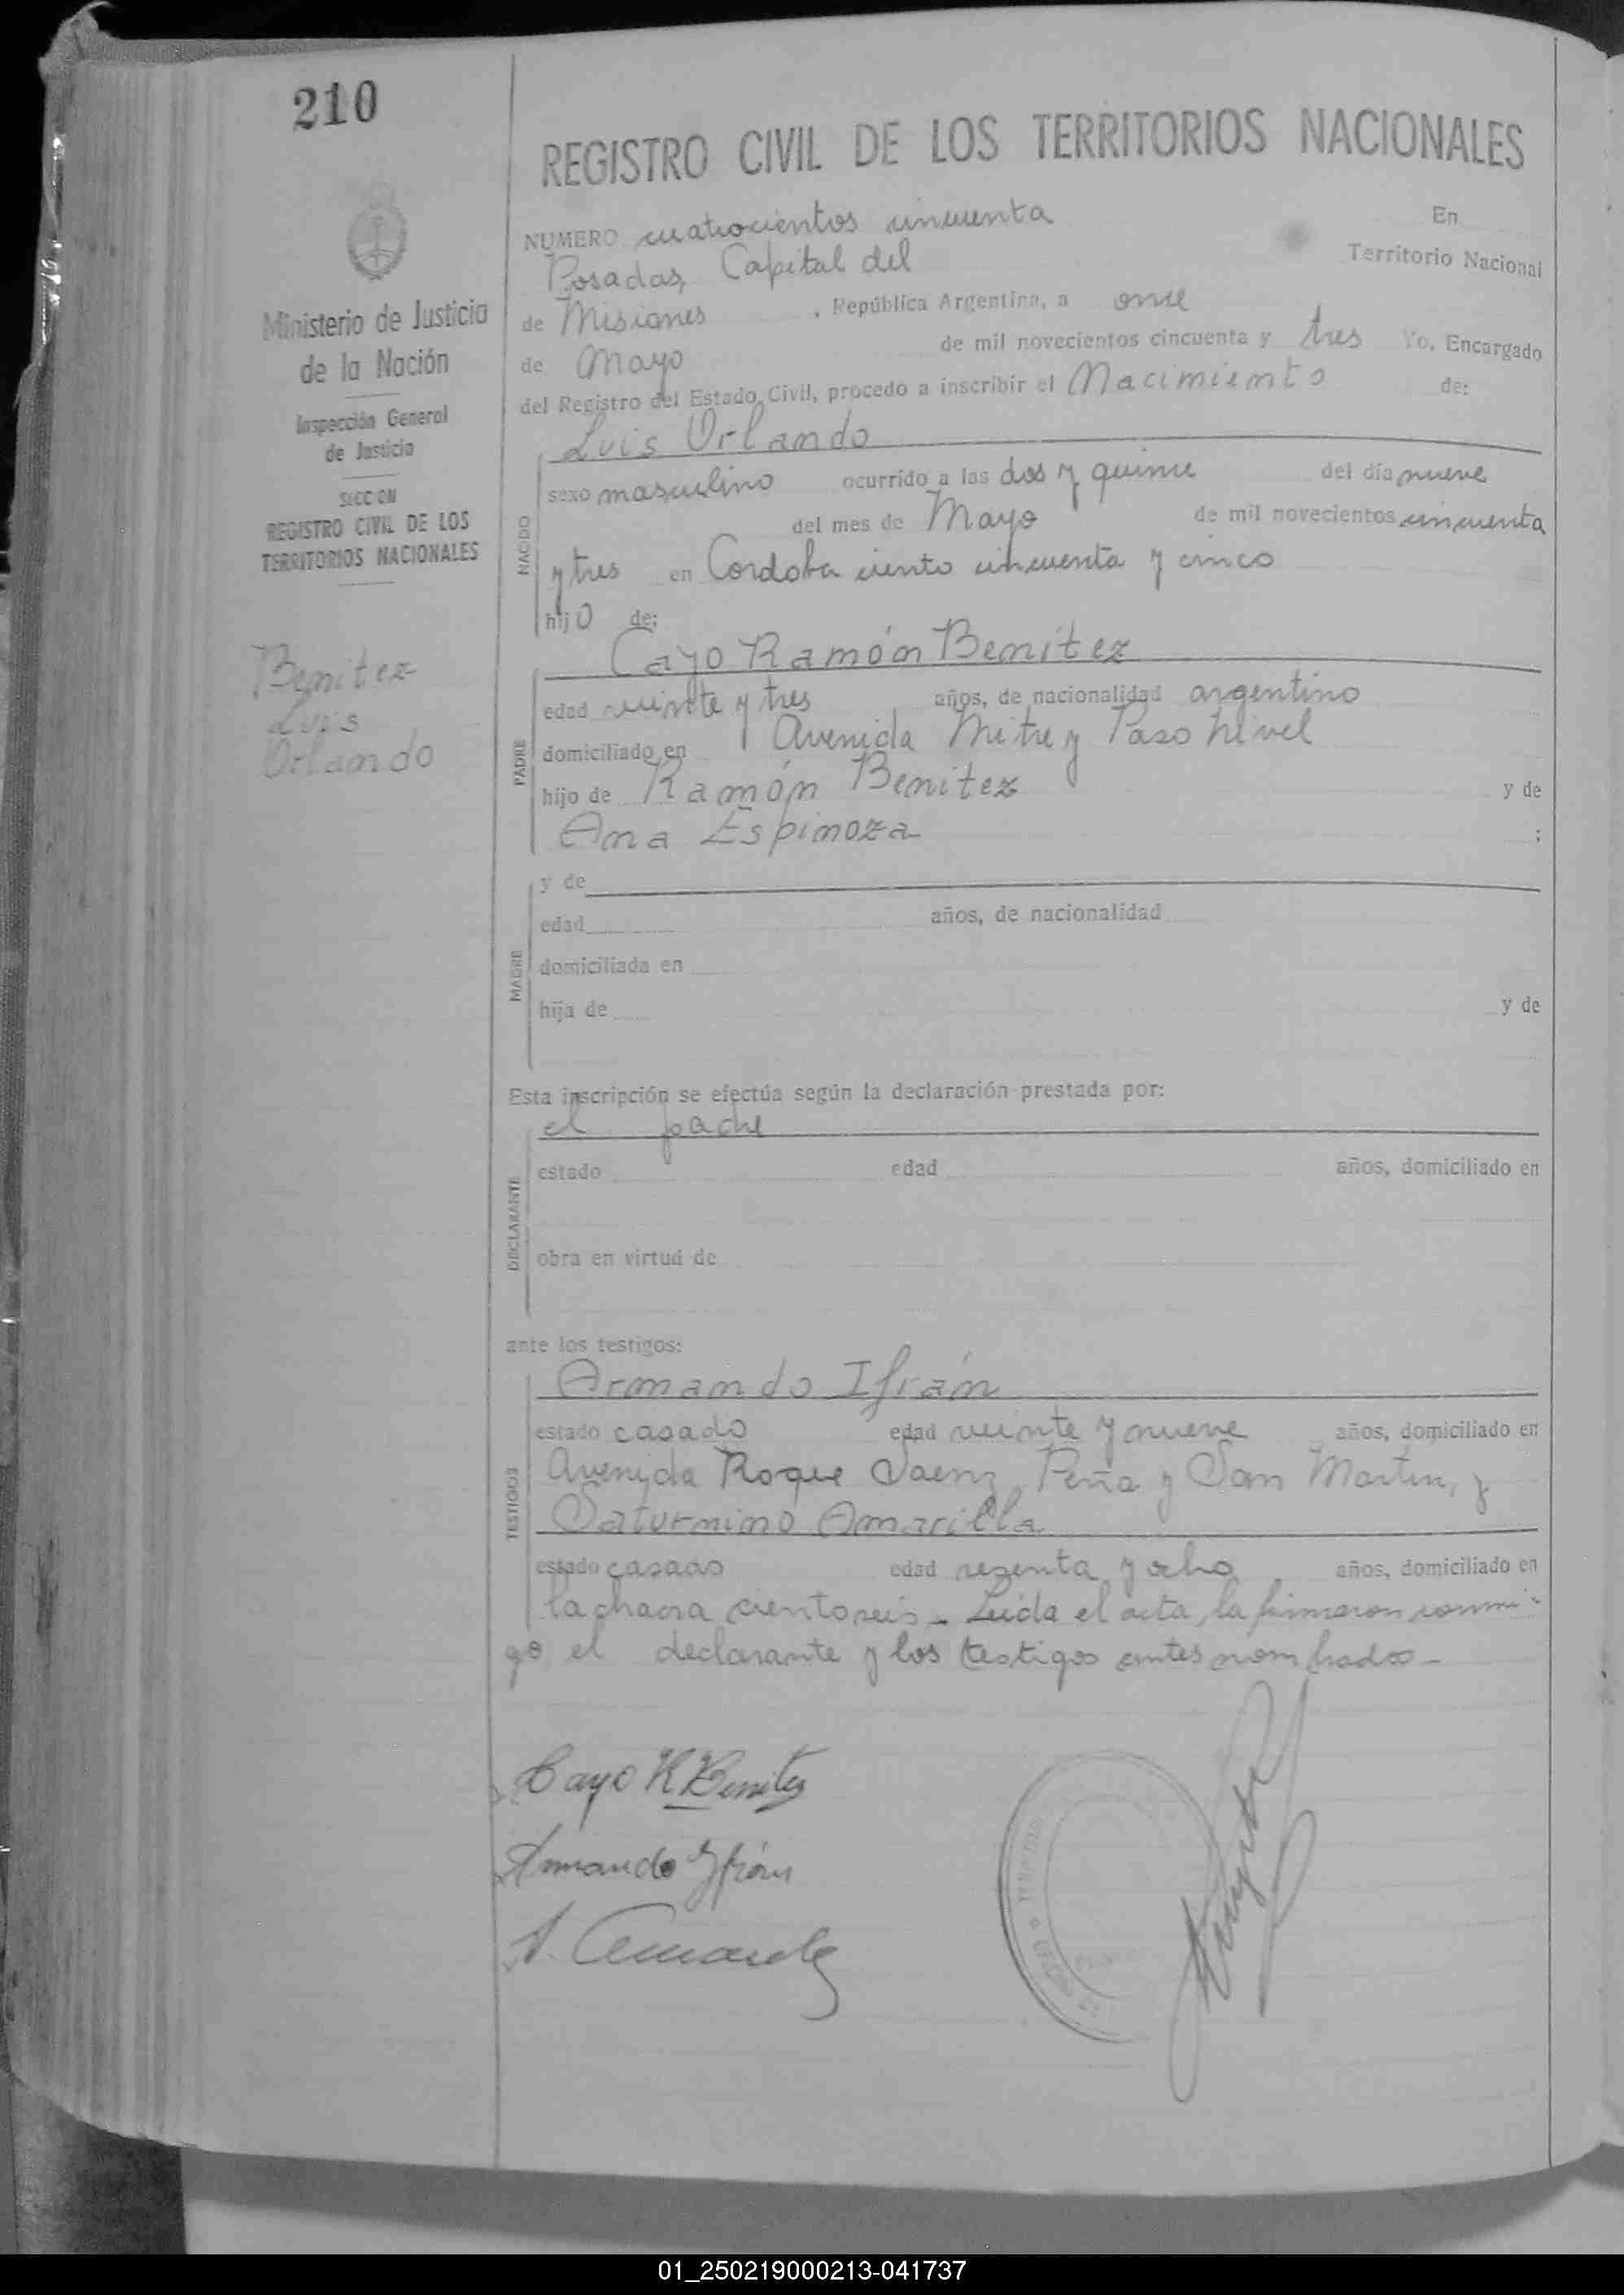 210
REGISTRO CIVIL DE LOS TERRITORIOS NACIONALES
Ministerio de Justicia
de la Nación
Inspección General
de Justicia
SECCION
REGISTRO CIVIL DE LOS
TERRITORIOS NACIONALES
Benitez
Luis
Orlando
NUMERO cuatrocientos cincuenta En
Posadas, Capital del Territorio Nacional
de Misiones , República Argentina, a once
de Mayo de mil novecientos cincuenta y tres Yo, Encargado
del Registro del Estado Civil, procedo a inscribir el Nacimiento de:
Luis Orlando
NACIDO
sexo masculino ocurrido a las dos y quince del día nueve
del mes de Mayo de mil novecientos cincuenta
y tres en Cordoba ciento cincuenta y cinco
hijo de:
Cayo Ramón Benítez
PADRE
edad veinte y tres años, de nacionalidad argentino
domiciliado en Avenida Mitre y Paso Nivel
hijo de Ramón Benitez y de
Ana Espinoza ;
MADRE
y de
edad años, de nacionalidad
domiciliada en
hija de y de
Esta inscripción se efectúa según la declaración prestada por:
el padre
DECLARANTE
estado edad años, domiciliado en
obra en virtud de
ante los testigos:
Armando Ifrán
TESTIGOS
estado casado edad veinte y nueve años, domiciliado en
Avenida Roque Saenz Peña y San Martin, y
Saturnino Amarilla
estado casado edad sesenta y ocho años, domiciliado en
la chacra ciento seis - Leída el acta, la firmaron conmi-
go, el declarante y los testigos antes nombrados -
Cayo R Benitez
Armando Ifrán
S. Amarilla
01_250219000213-041737